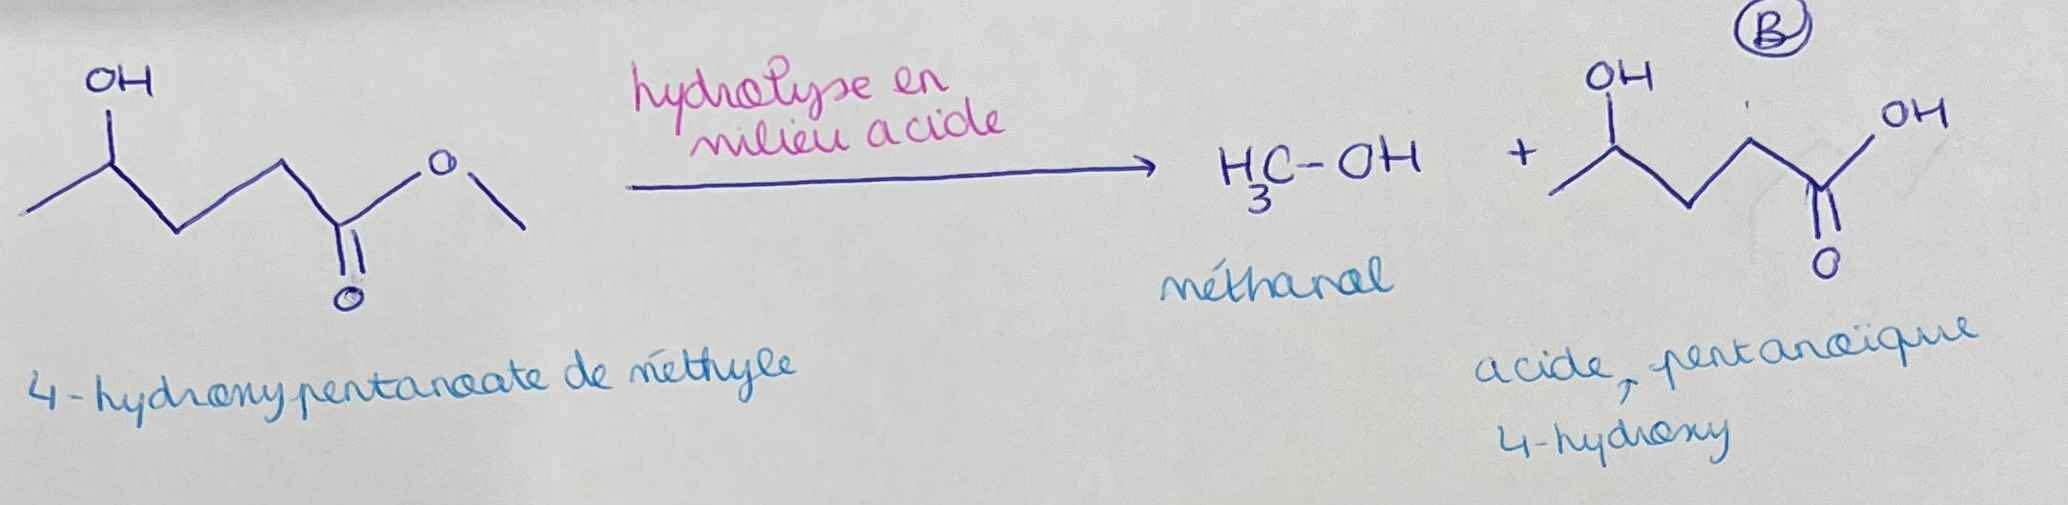 B
OH
hydrolyse en
milieu acide
O
O
H3C-OH
+
OH
OH
O
méthanol
4-hydroxypentanoate de méthyle
acide, pentanoïque
4-hydroxy